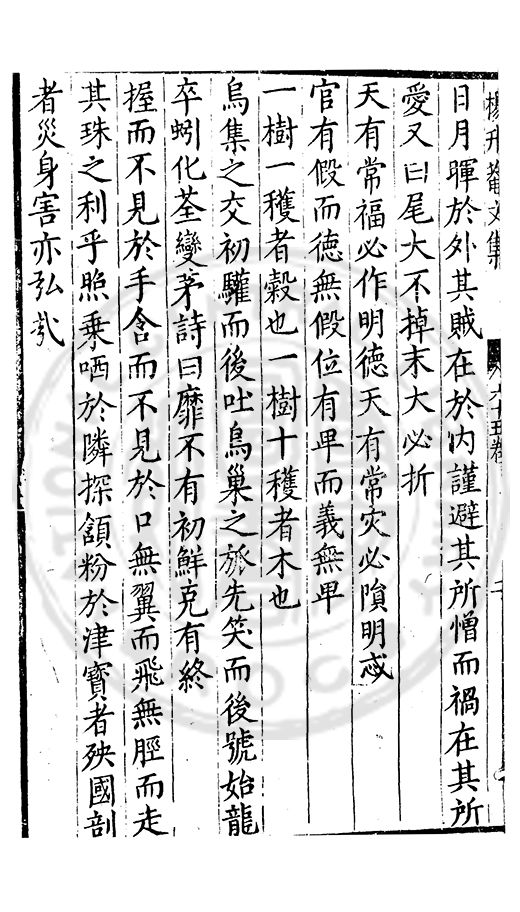 楊升菴文集 六十五卷
日月暉於外其賊在於內謹避其所憎而禍在其所
愛又曰尾大不掉末大必折
天有常福必作明德天有常灾必隕明忒
官有假而德無假位有卑而義無卑
一樹一穫者穀也一樹十穫者木也
烏集之交初驩而後吐鳥巢之旅先笑而後號始龍
卒蚓化荃變茅詩曰靡不有初鮮克有終
握而不見於手含而不見於口無翼而飛無脛而走
其珠之利乎照乗哂於隣探頷粉於津寳者殃國剖
者災身害亦弘㢤